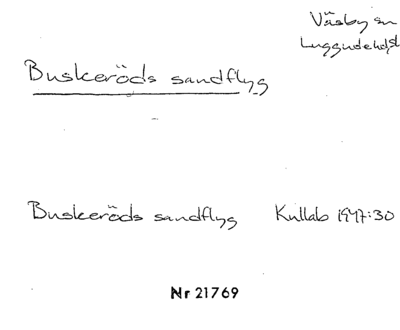 Väsby sn
Luggude hd, st
Buskeröds sandflyg
Buskeröds sandflyg Kullab 1947:30
Nr 21769